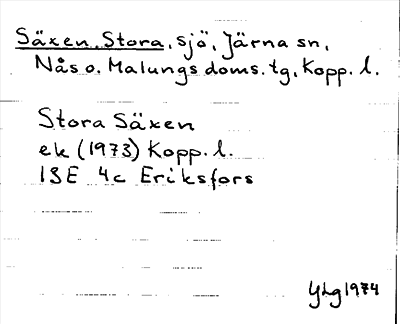 Säxen, Stora, sjö, Järna sn,
Nås o. Malungs doms. tg, Kopp. l.
Stora Säxen
ek (1973) Kopp. l.
13E 4c Eriksfors
YLg 1974